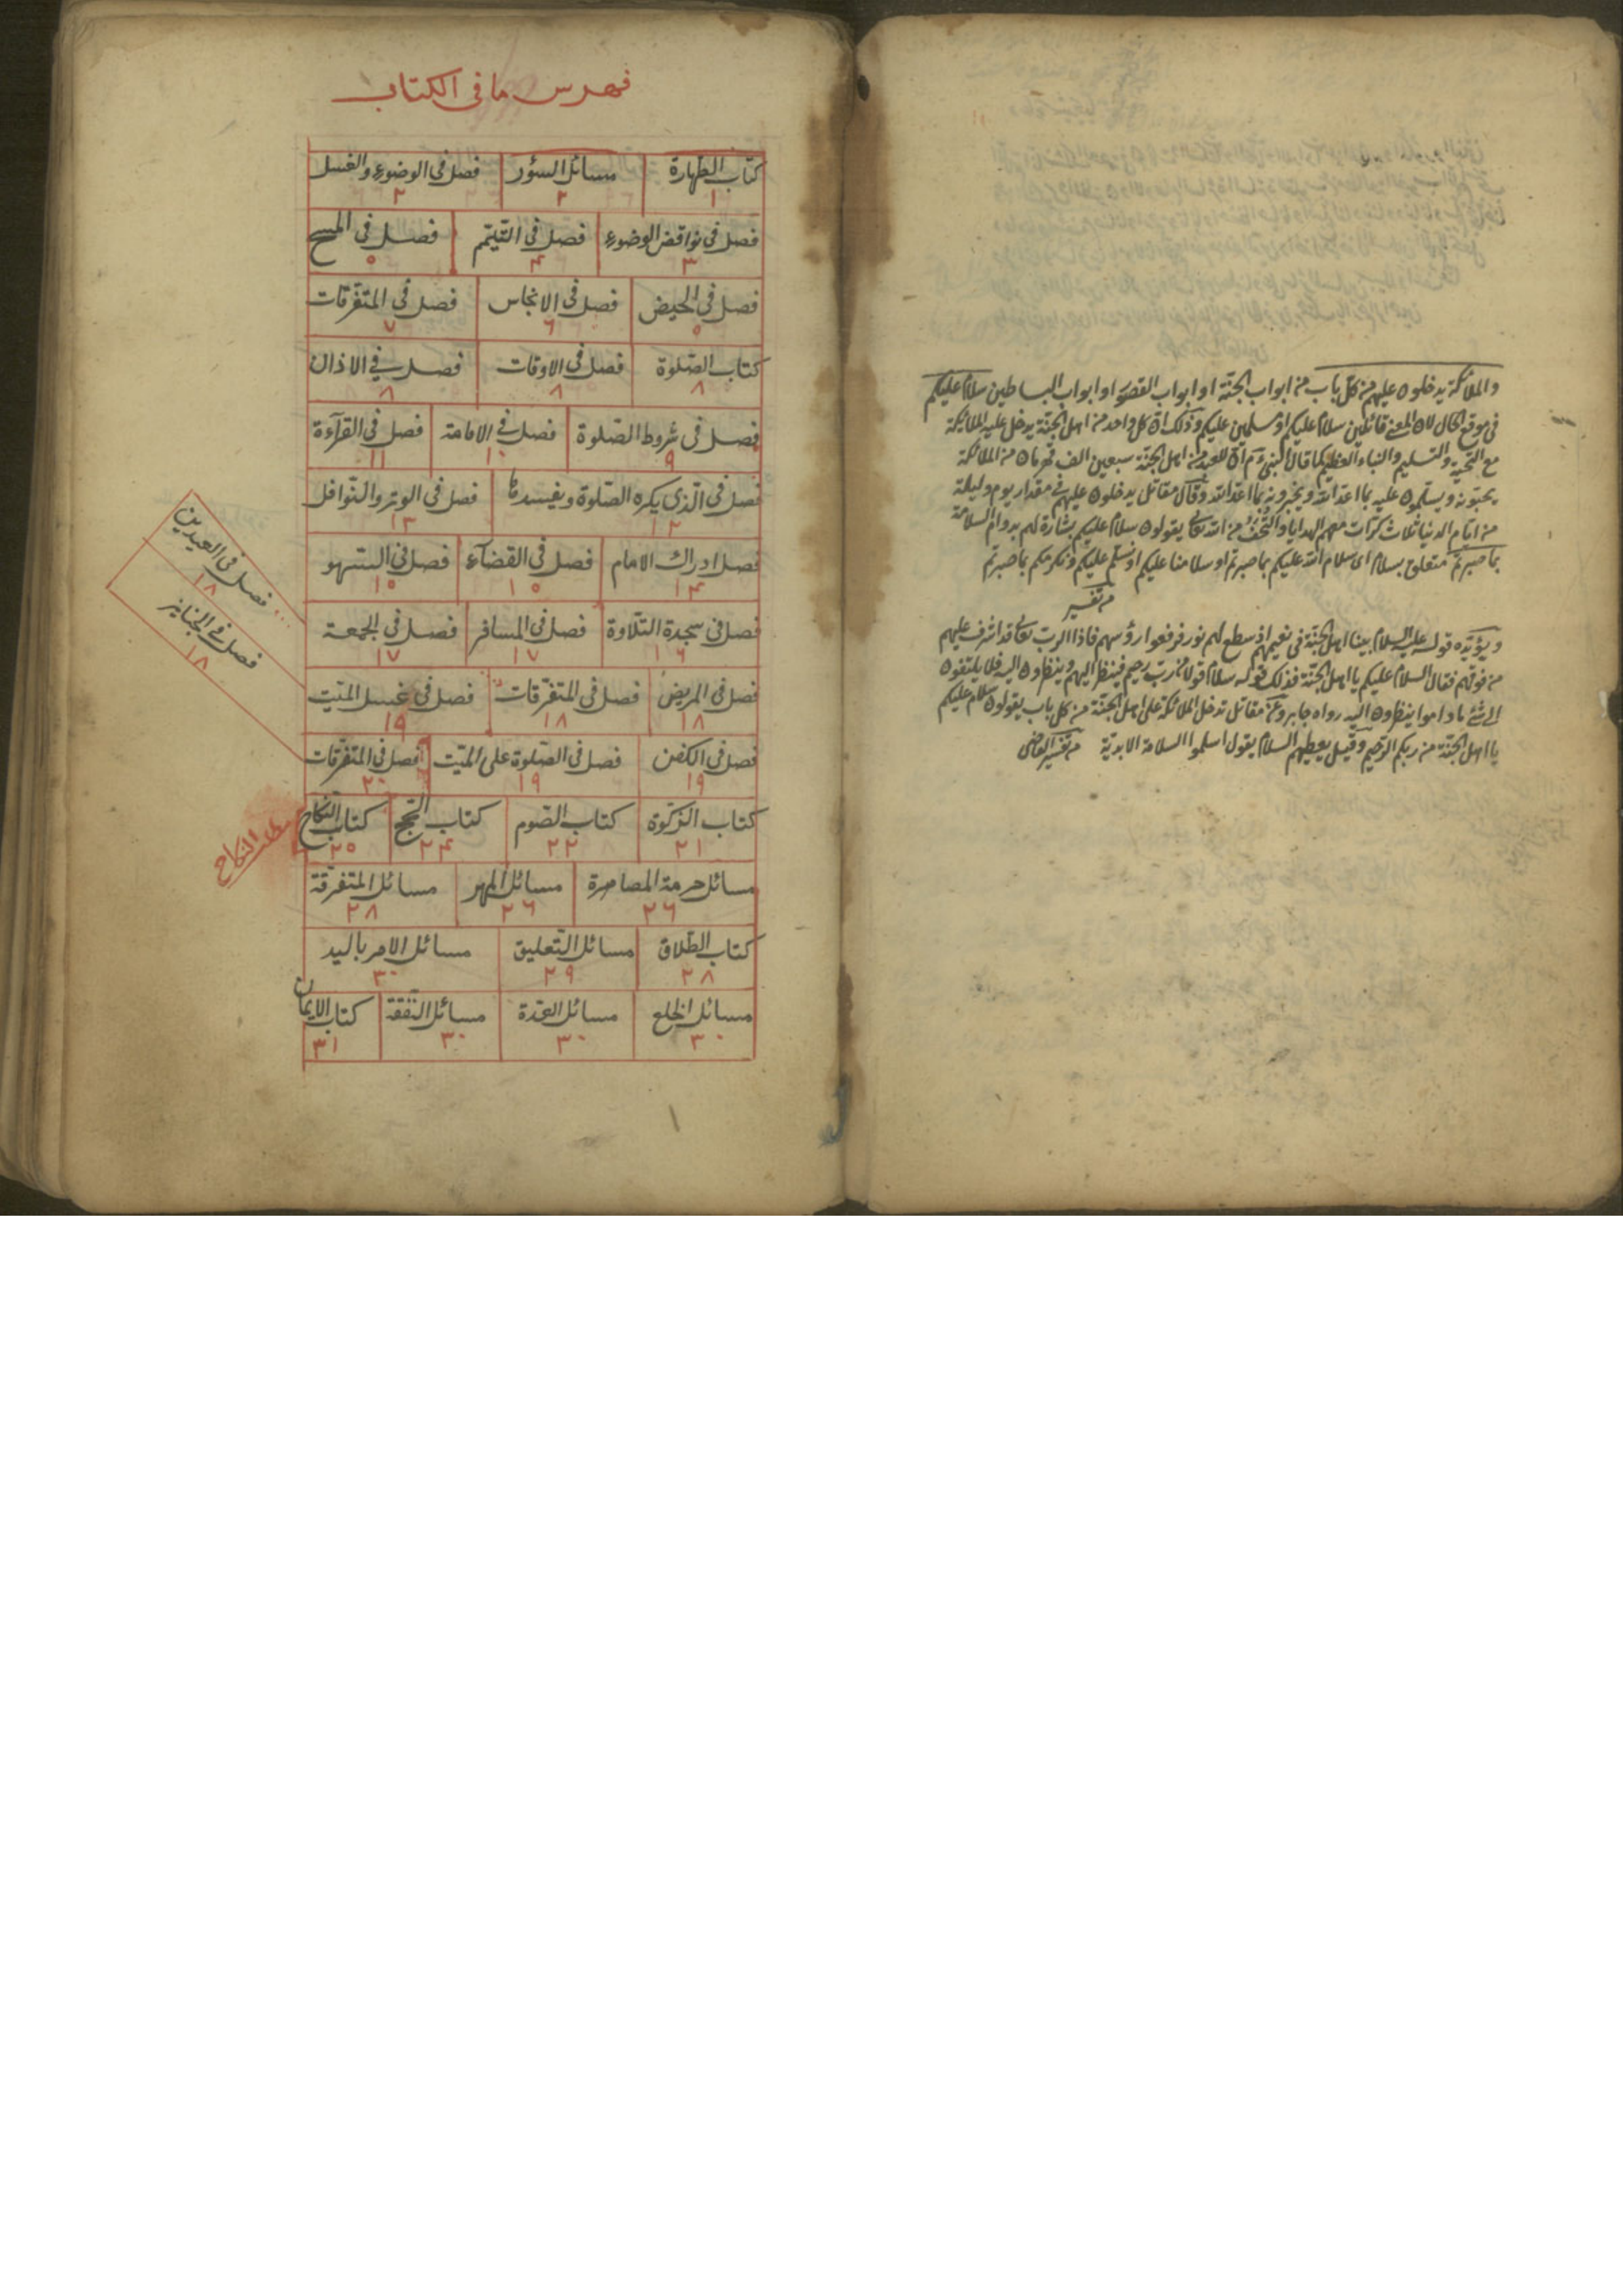 والملائكة يدخلون عليهم من كل باب من ابواب الجنة او ابواب القصور او ابواب البساطين سلام عليكم
في موقع الحال لان المعنى قائلين سلام عليكم او مسلمين عليكم وذلك ان كل واحد من اهل الجنة يدخل عليه الملائكة
مع التحية والتسليم والنباء العظيم كما قال النبي ان للعبد من اهل الجنة سبعين الف قهرمان من الملائكة
يحبونه ويسلمون عليه بما اعد الله ويخبرونه بما اعد الله وقال مقاتل يدخلون عليهم في مقدار يوم وليلة
من ايام الدنيا ثلاث كرات معهم الهدايا والتحف من الله تعالى يقولون سلام عليكم بشارة لهم بدوام السلامة
بما صبرتم متعلق بسلام اى سلام الله عليكم بما صبرتم او سلامنا عليكم او نسلم عليكم ونكرمكم بما صبرتم
من تفسير
ويؤيده قوله عليه السلام بينا اهل الجنة في نعيمهم اذ سطع لهم نور فرفعوا رؤسهم فاذا الرب تعالى قد اشرف عليهم
من فوقهم فقال السلام عليكم يا اهل الجنة فذلك قوله سلام قولا من رب رحيم فينظر اليهم وينظرون اليه فلا يلتفتون
الى شئ ما داموا ينظرون اليه رواه جابر وعن مقاتل تدخل الملائكة على اهل الجنة من كل باب يقولون سلام عليكم
يا اهل الجنة من ربكم الرحيم وقيل يعطيهم السلام يقول اسلموا السلامة الابدية من تفسير القاضى
فهرس ما فى الكتاب
كتاب الطهارة ١ مسائل السؤر ٢ فصل فى الوضوء والغسل ٢
فصل فى نواقض الوضوء ٣ فصل فى التيمم ۴ فصل فى المسح ٥
فصل فى الحيض ٥ فصل فى الانجاس ٦ فصل فى المتفرقات ٧
كتاب الصلوة ٨ فصل فى الاوقات ٨ فصل فى الاذان ٨
فصل فى شروط الصلوة ٩ فصل فى الامامة ١٠ فصل فى القرآءة ١١
فصل فى الذى يكره الصلوة ويفسدها ١٢ فصل فى الوتر والنوافل ١٣
فصل ادراك الامام ١۴ فصل فى القضآء ١٥ فصل فى السهو ١٥
فصل فى سجدة التلاوة ١٦ فصل فى المسافر ١٧ فصل فى الجمعة ١٧
فصل فى المريض ١٨ فصل فى المتفرقات ١٨ فصل فى غسل الميت ١٩
فصل فى العيدين ١٨
فصل فى الجنايز ١٨
فصل فى الكفن ١٩ فصل فى الصلوة على الميت ١٩ فصل فى المتفرقات ٢٠
كتاب الزكوة ٢١ كتاب الصوم ٢٢ كتاب الحج ٢۴ كتاب النكاح ٢٥
النكاح
مسائل حرمة المصاهرة ٢٦ مسائل المهر ٢٦ مسائل المتفرقة ٢٨
كتاب الطلاق ٢٨ مسائل التعليق ٢٩ مسائل الامر باليد ٣٠
مسائل الخلع ٣٠ مسائل العدة ٣٠ مسائل النفقة ٣٠ كتاب الايمان ٣١